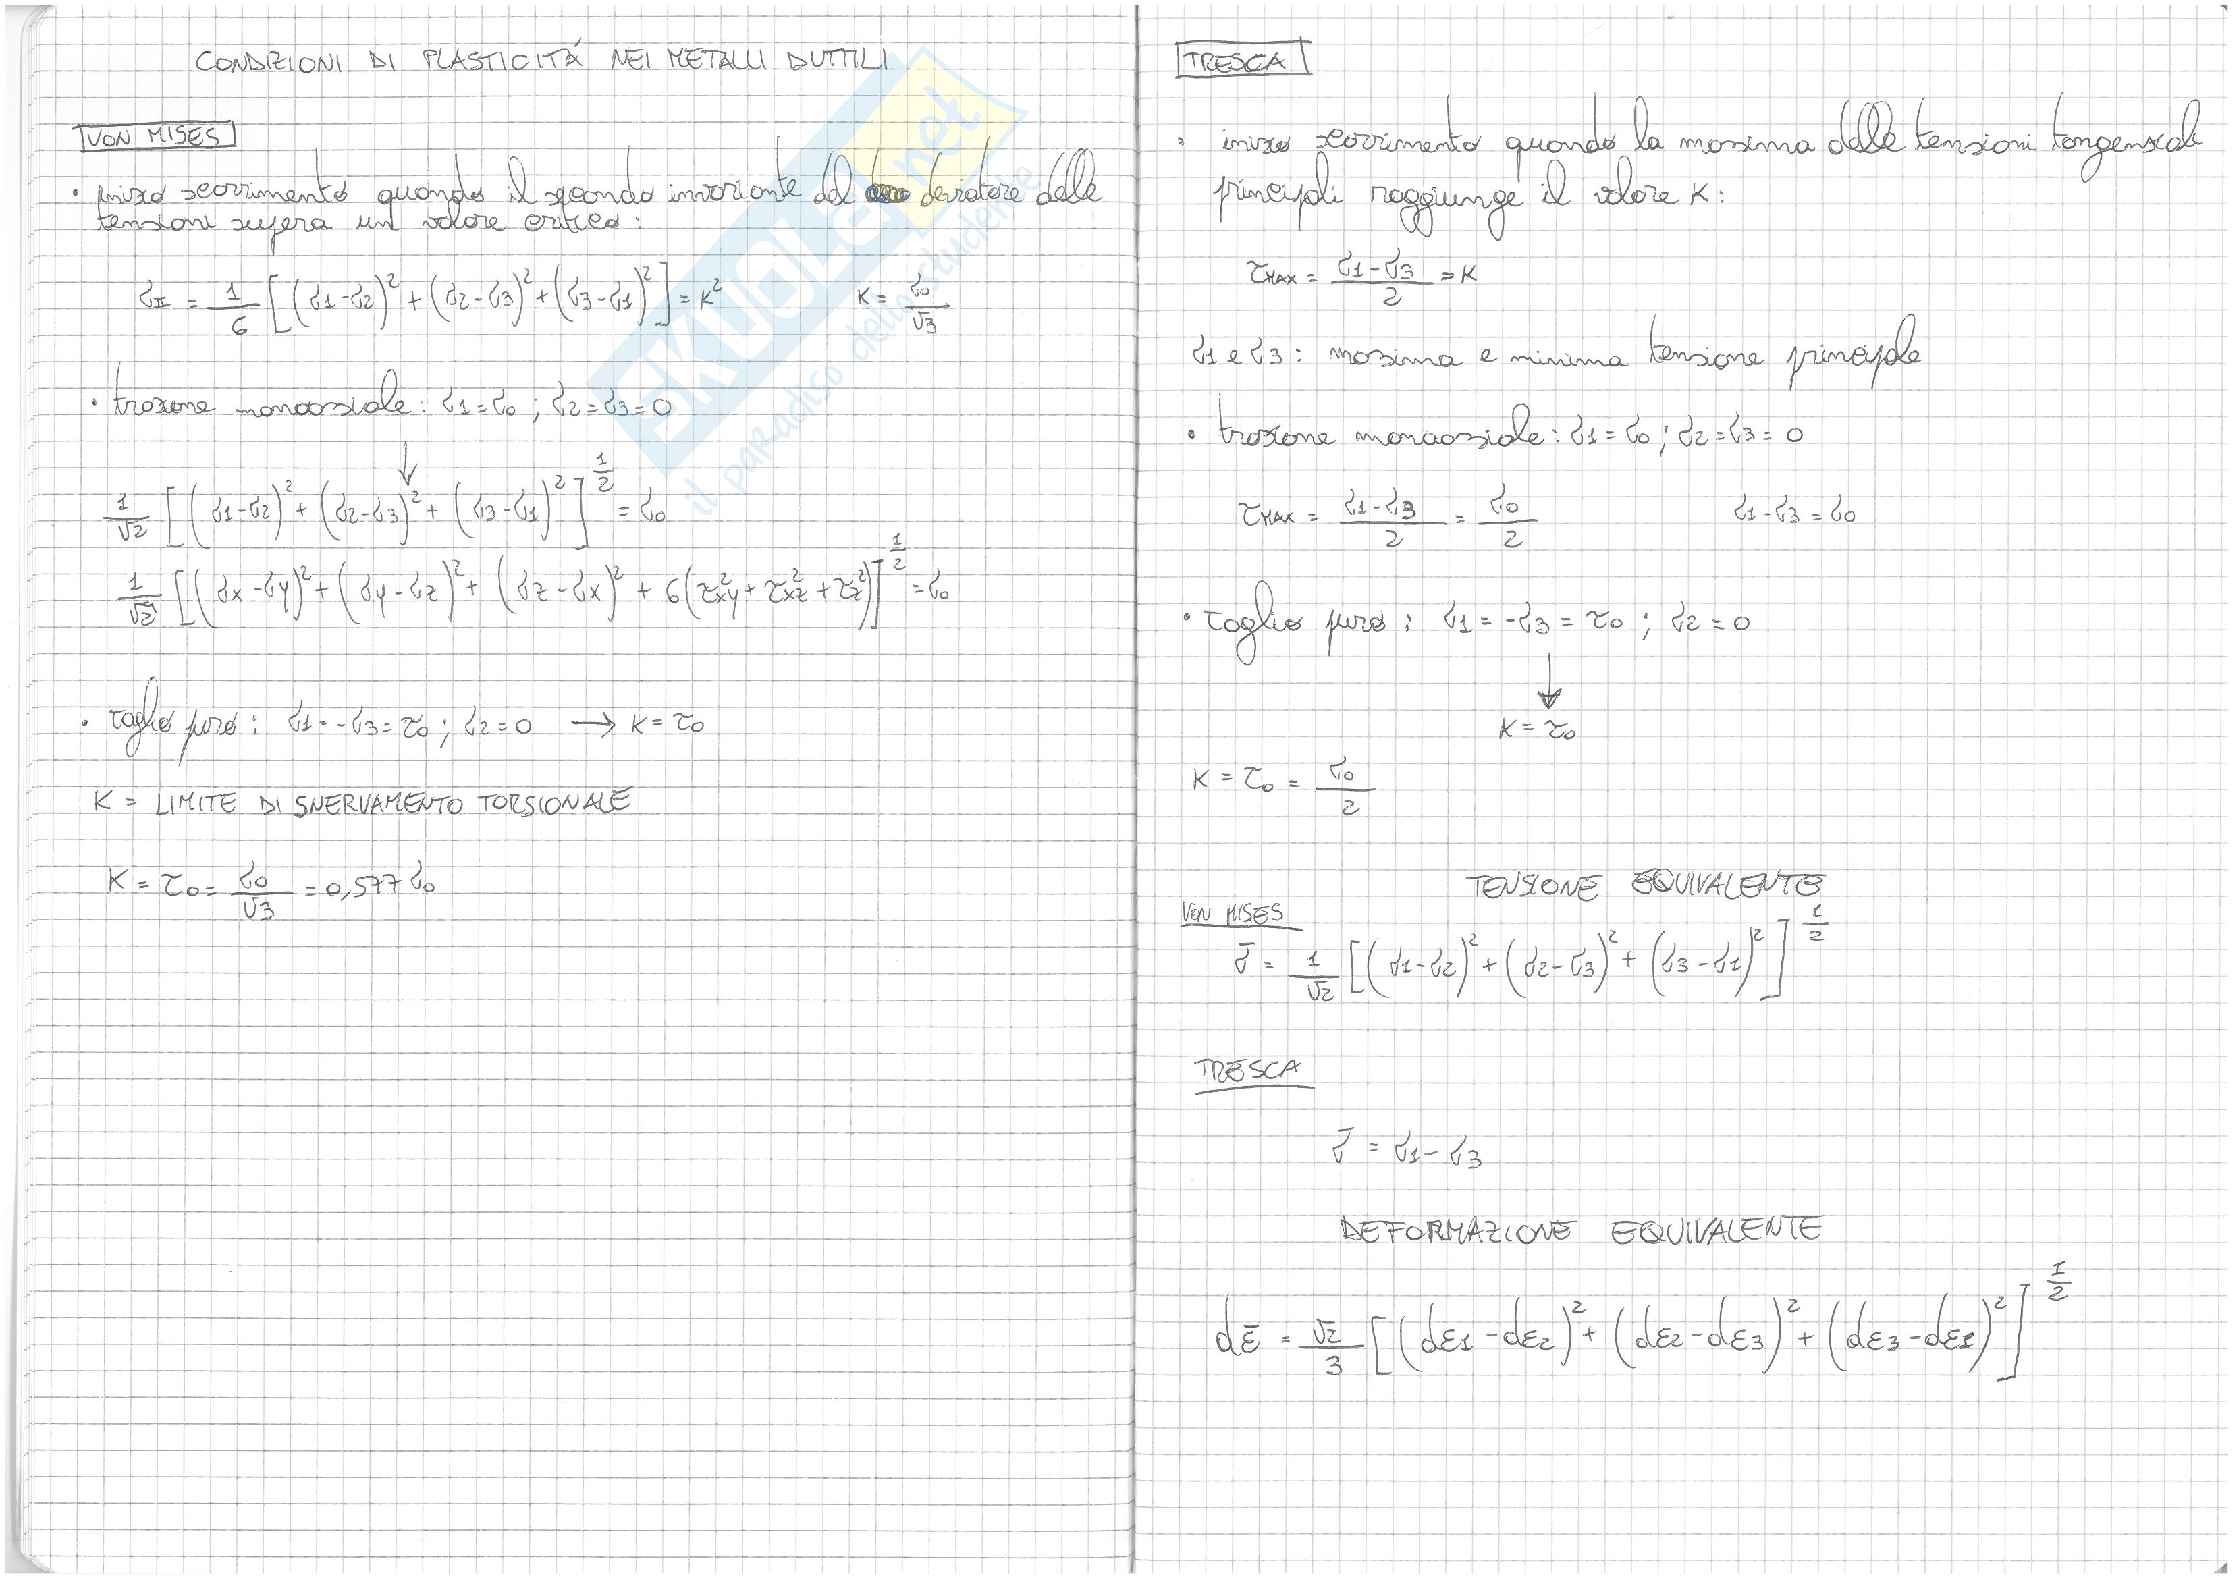 CONDIZIONI DI PLASTICITÁ NEI METALLI DUTTILI
VON MISES
• inizio scorrimento quando il secondo invariante del deviatore delle
tensioni supera un valore critico:
σII = 1/6 [(σ1-σ2)² + (σ2-σ3)² + (σ3-σ1)²] = K² K = σ0/√3
• trazione monoassiale: σ1=σ0 ; σ2=σ3=0
↓
1/√2 [(σ1-σ2)² + (σ2-σ3)² + (σ3-σ1)²]^1/2 = σ0
1/√2 [(σx-σy)² + (σy-σz)² + (σz-σx)² + 6(τ²xy + τ²xz + τ²z)]^1/2 = σ0
• taglio puro: σ1=-σ3=τ0 ; σ2=0 → K=τ0
K = LIMITE DI SNERVAMENTO TORSIONALE
K = τ0 = σ0/√3 = 0,577 σ0
TRESCA
• inizio scorrimento quando la massima delle tensioni tangenziali
principali raggiunge il valore K:
τMAX = (σ1-σ3)/2 = K
σ1 e σ3: massima e minima tensione principale
• trazione monoassiale: σ1=σ0 ; σ2=σ3=0
τMAX = (σ1-σ3)/2 = σ0/2 σ1-σ3=σ0
• taglio puro: σ1=-σ3=τ0 ; σ2=0
↓
K=τ0
K = τ0 = σ0/2
TENSIONE EQUIVALENTE
VON MISES
σ̄ = 1/√2 [(σ1-σ2)² + (σ2-σ3)² + (σ3-σ1)²]^1/2
TRESCA
σ̄ = σ1-σ3
DEFORMAZIONE EQUIVALENTE
dε̄ = √2/3 [(dε1-dε2)² + (dε2-dε3)² + (dε3-dε1)²]^1/2
SKUOLA.net
il paradiso dello studente